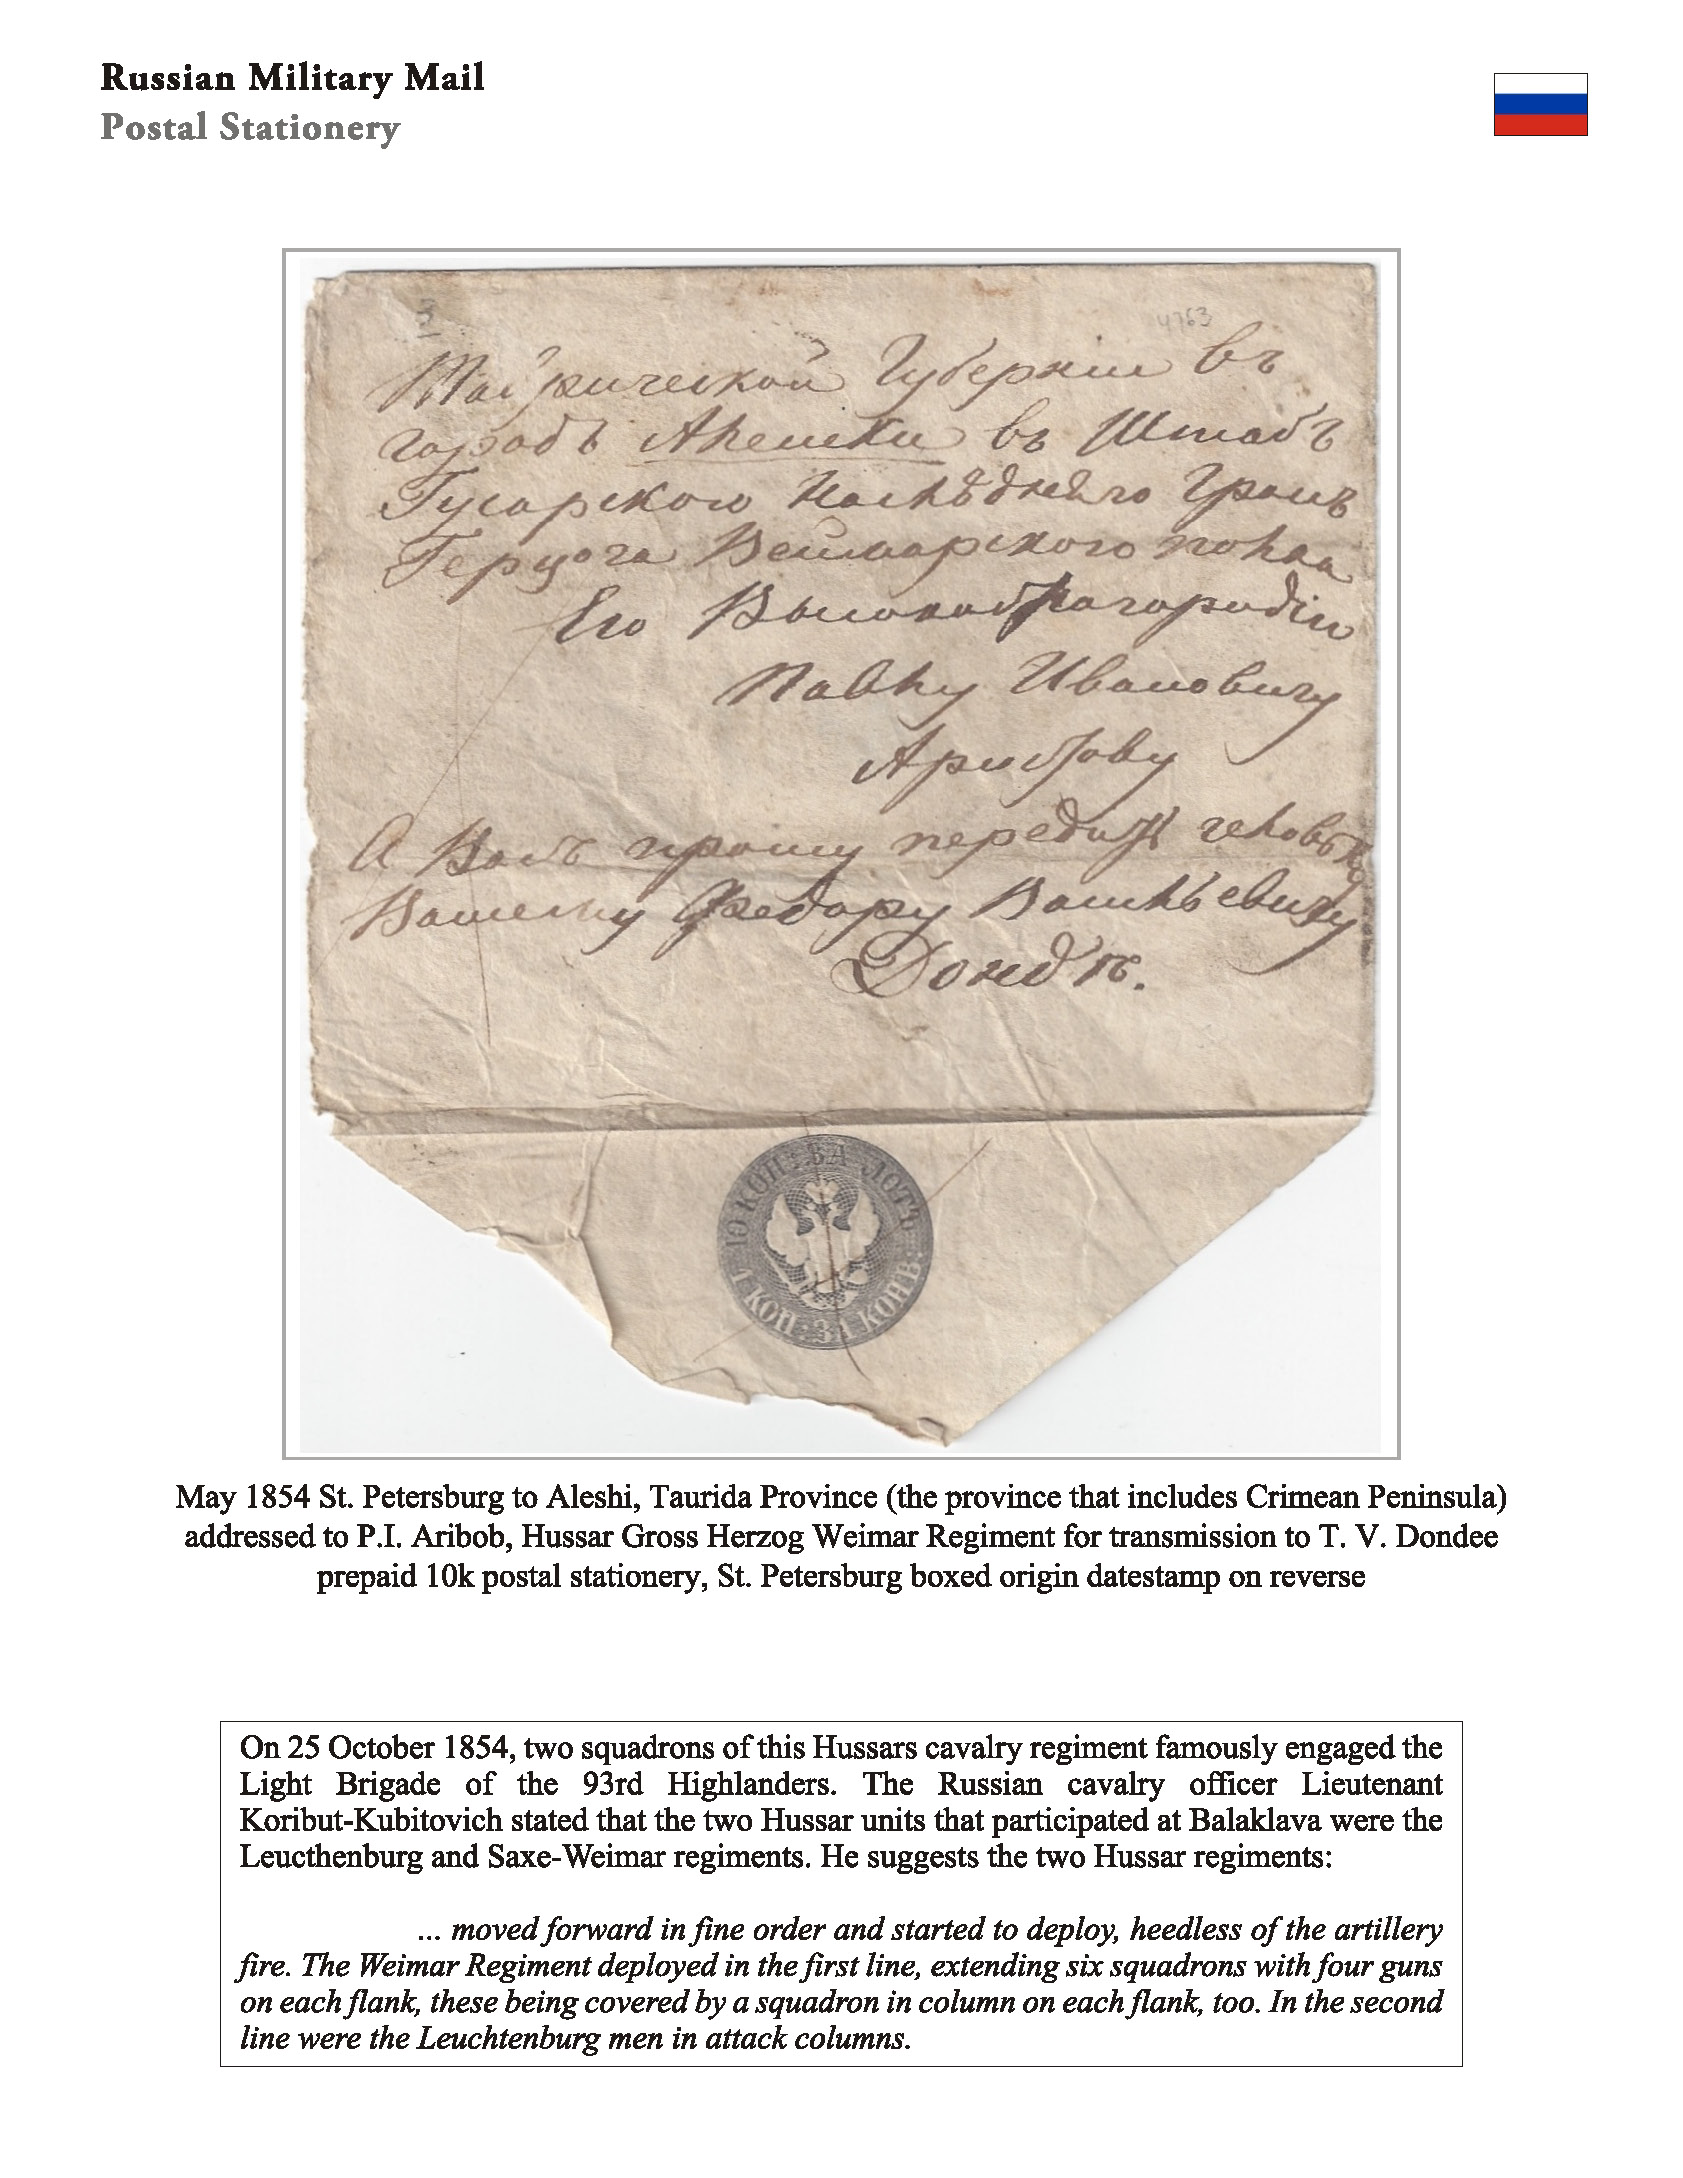 Russian Military Mail
Postal Stationery
3
4763
Таврической Губернiи въ
городъ Алешки въ Штабъ
Гусарского Наслѣднаго Гросъ
Герцога Веймарского полка
Его Высокоблагородiю
Павлу Ивановичу
Васъ прошу передать человѣку
Вашему Федору Васильевичу
10 КОП: ЗА ЛОТЪ
1 КОП: ЗА КОНВ:
May 1854 St. Petersburg to Aleshi, Taurida Province (the province that includes Crimean Peninsula)
addressed to P.I. Aribob, Hussar Gross Herzog Weimar Regiment for transmission to T. V. Dondee
prepaid 10k postal stationery, St. Petersburg boxed origin datestamp on reverse
On 25 October 1854, two squadrons of this Hussars cavalry regiment famously engaged the
Light Brigade of the 93rd Highlanders. The Russian cavalry officer Lieutenant
Koribut-Kubitovich stated that the two Hussar units that participated at Balaklava were the
Leucthenburg and Saxe-Weimar regiments. He suggests the two Hussar regiments:
... moved forward in fine order and started to deploy, heedless of the artillery
fire. The Weimar Regiment deployed in the first line, extending six squadrons with four guns
on each flank, these being covered by a squadron in column on each flank, too. In the second
line were the Leuchtenburg men in attack columns.